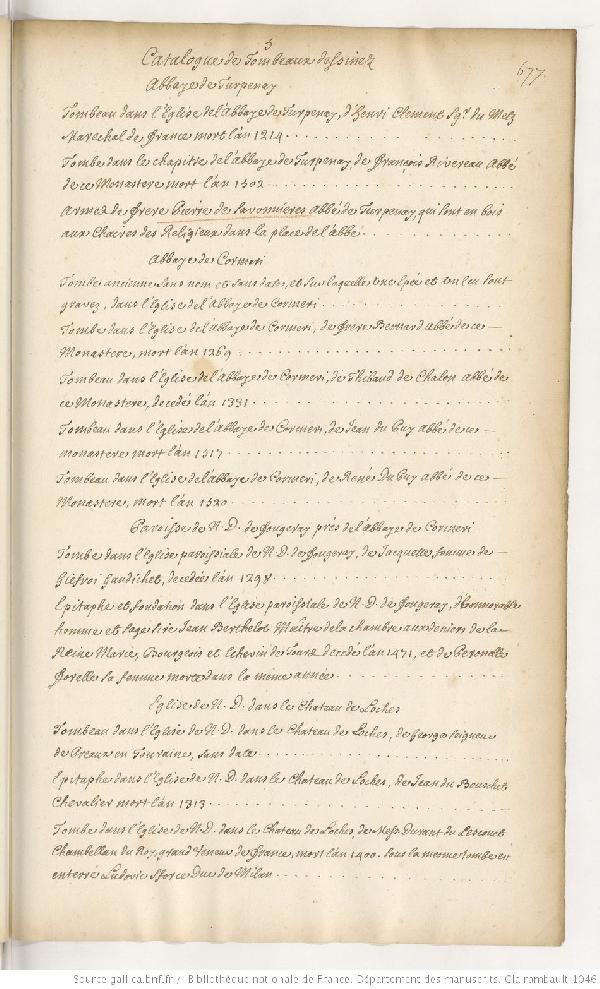 3
Catalogue de Tombeaux dessinez
677.
Abbaye de Turpenay
Tombeau dans l'Eglise de l'Abbaye de Turpenay, d'Henri Clement Sgr. du Metz
Marechal de France mort l'an 1214
Tombe dans le chapitre de l'abbaye de Turpenay, de François Rivereau Abbé
de ce Monastere mort l'an 1502
Armes de Frere Pierre de Savonnieres Abbé de Turpenay, qui sont en bois
aux Chaires des Religieux dans la place de l'abbé
Abbaye de Cormeri
Tombe ancienne sans nom et sans date, et sur laquelle une epée et un leu sont
gravez, dans l'Eglise de l'Abbaye de Cormeri
Tombe dans l'Eglise de l'abbaye de Cormeri, de frere Bernard Abbé de ce
Monastere, mort l'an 1269
Tombeau dans l'Eglise de l'Abbaye de Cormeri, de Thibaud de Chalon abbé de
ce Monastere, decedé l'an 1331
Tombeau dans l'Eglise de l'Abbaye de Cormeri, de Jean du Puy abbé de ce
monastere mort l'an 1517
Tombeau dans l'Eglise de l'abbaye de Cormeri, de René Du Puy abbé de ce
Monastere, mort l'an 1520
Paroisse de N. D. de Fougeray prés de l'abbaye de Cormeri
Tombe dans l'Eglise paroissiale de N. D. de Fougeray, de Jacquelle femme de
Giefroi Gaudichet, decedée l'an 1298
Epitaphe et fondation dans l'Eglise paroissiale de N. D. de Fougeray, d'honnorable
homme et sage sire Jean Berthelot Maître de la chambre aux deniers de la
Reine Marie, Bourgeois et Echevin de Tours decedé l'an 1471, et de Peronelle
Sorelle sa femme morte dans la meme année
Eglise de N. D. dans le Chateau de Loches
Tombeau dans l'Eglise de N. D. dans le Chateau de Loches, de George seigneur
de Preaux en Touraine, sans date
Epitaphe dans l'Eglise de N. D. dans le Chateau de Loches, de Jean du
Chevalier mort l'an 1313
Tombe dans l'Eglise de N. D. dans le Chateau de Loches, de Mess. Durant de
Chambellan du Roy, grand Veneur de France, mort l'an 1400. sous la mesme tombe est
enterré Ludovic Sforce Duc de Milan
Source gallica.bnf.fr / Bibliothèque nationale de France. Département des manuscrits. Clairambault 1046